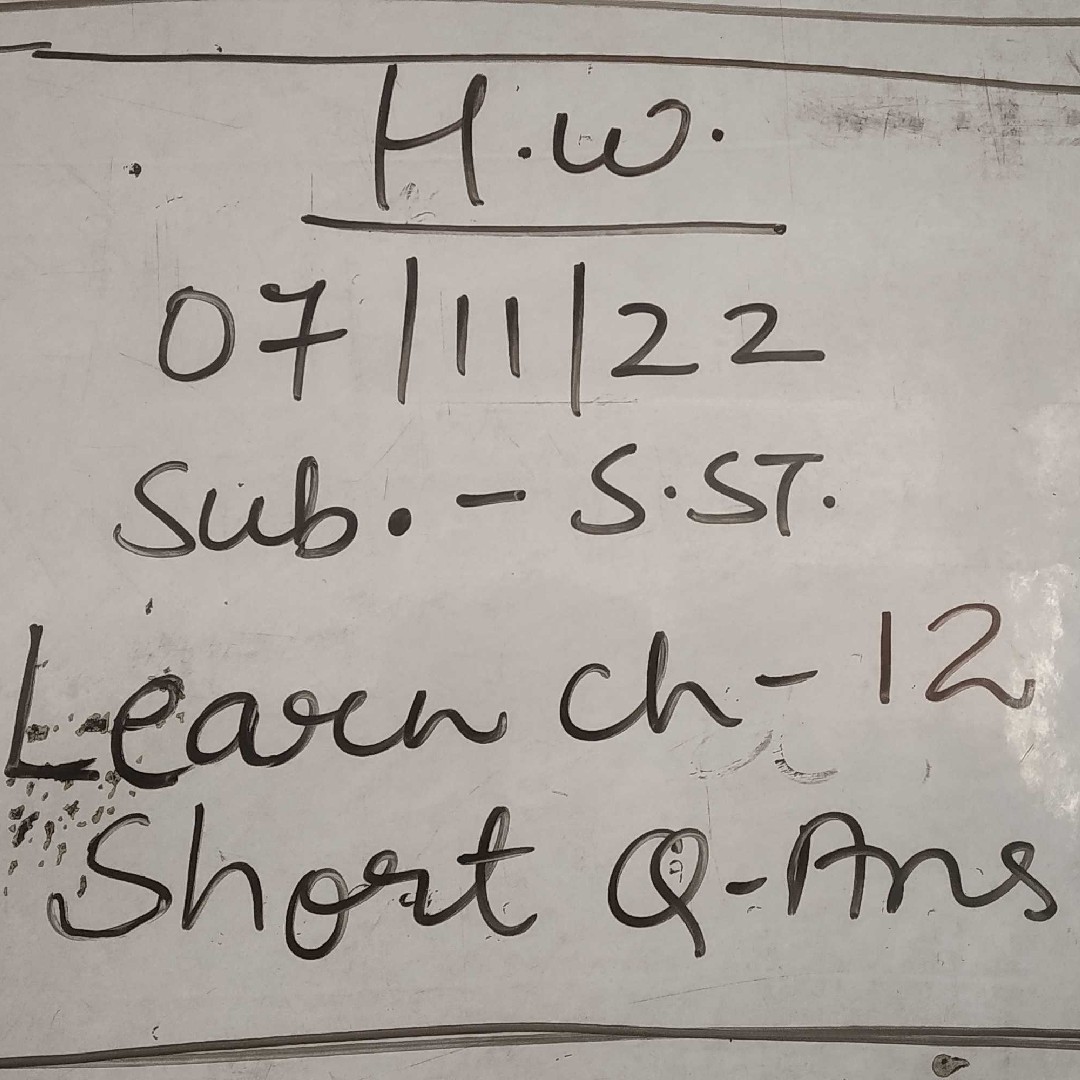 H.W.
07/11/22
Sub. - S.ST.
Learn ch - 12
Short Q-Ans